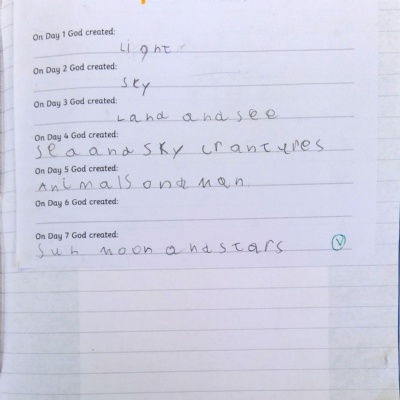 On Day 1 God created:
Light
On Day 2 God created:
Sky
On Day 3 God created:
Land and see
On Day 4 God created:
Sea and sky crantyres
On Day 5 God created:
Animals and man
On Day 6 God created:
On Day 7 God created:
Sun moon and stars
V